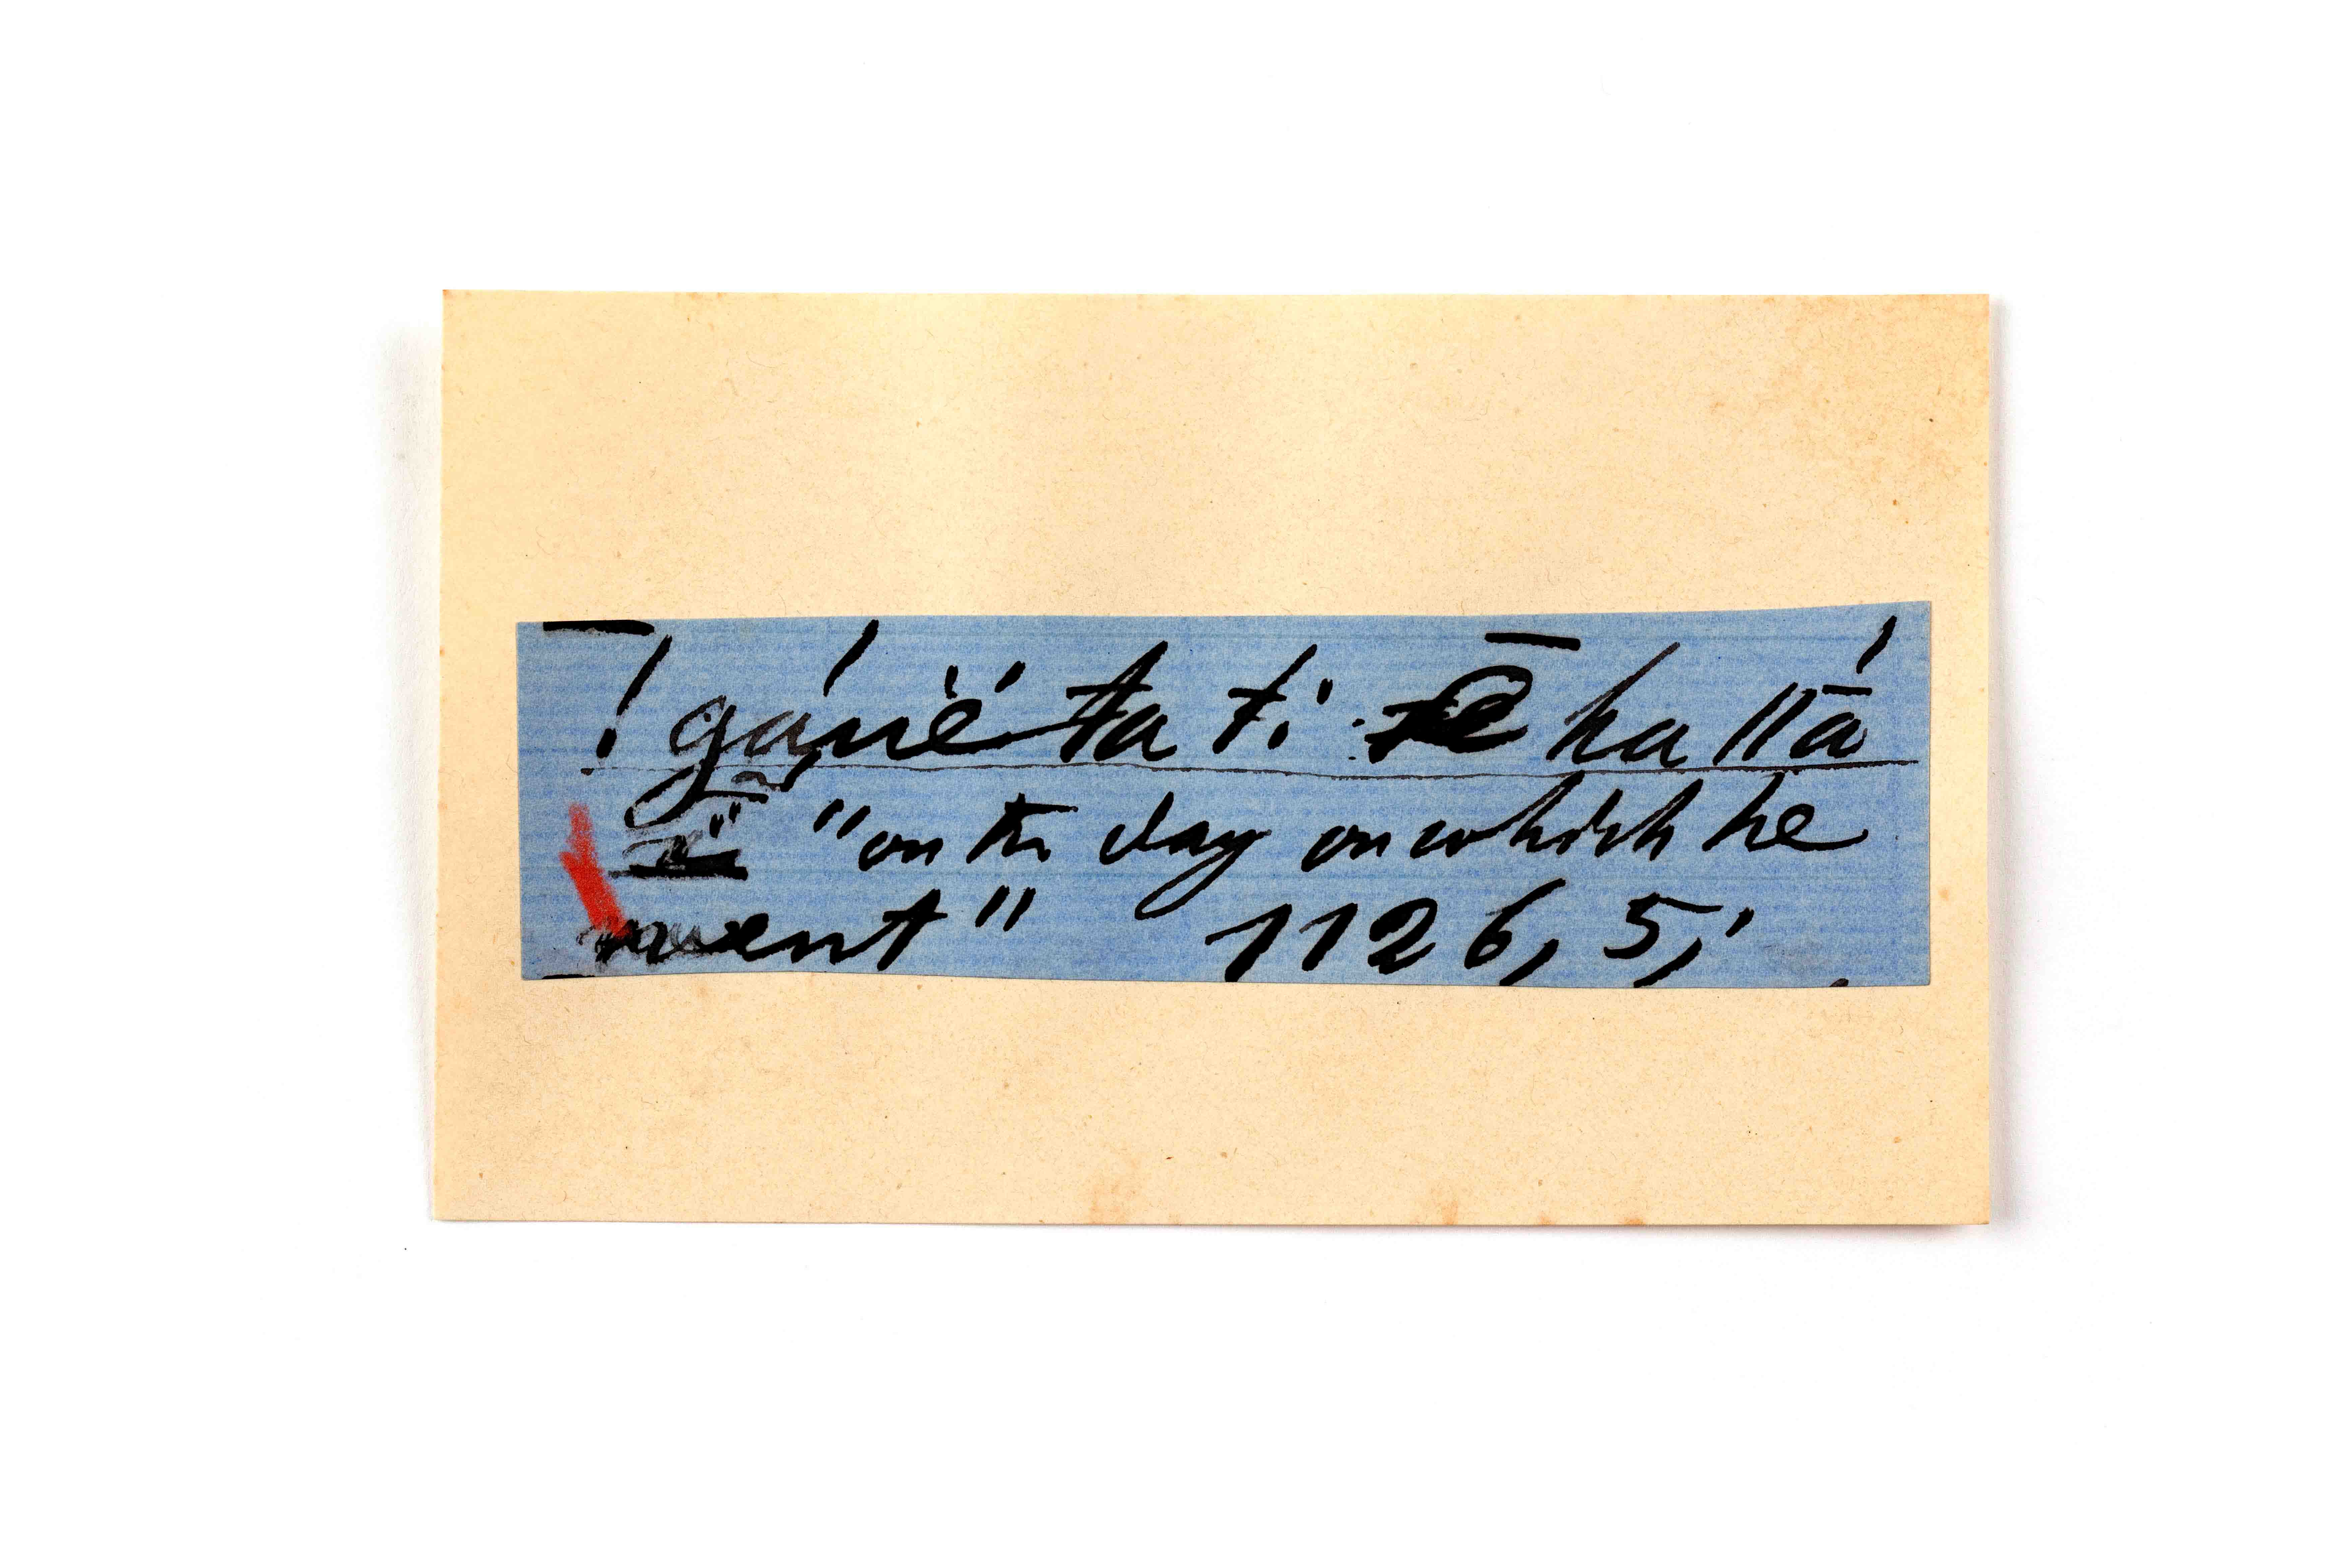 !gáuë ta ti ē ha //ā́
"on the day on which he
went" 1126, 5,'